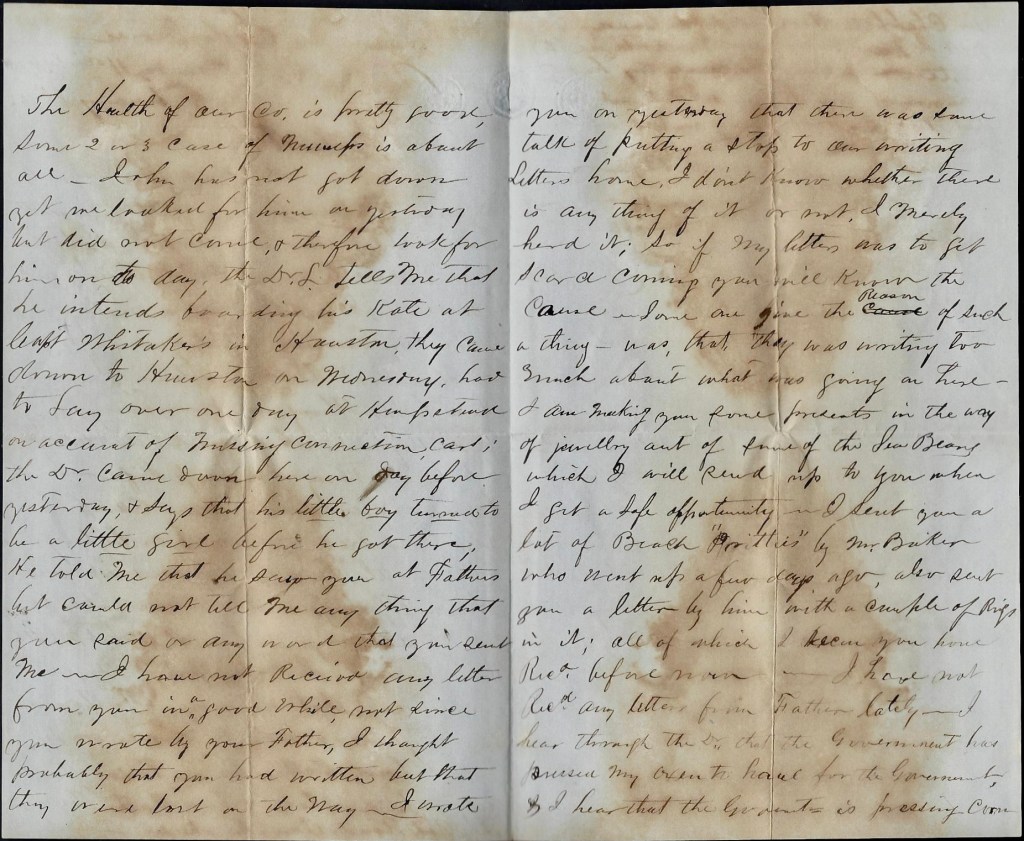 The Health of our Co. is pretty good,
Some 2 or 3 case of Mumps is about
all — John has not got down
yet we looked for him on yesterday
but did not come, & therefore look for
him on to day, the Dr. S. tells Me that
he intends boarding his Kate at
Capt Whitaker's in Houston, they came
down to Houston on Wednesday, had
to Lay over one day at Hempstead
on account of Missing connection, Cars;
the Dr. came down here on day before
yesterday, & Says that his little boy turned to
be a little girl before he got there,
He told Me that he saw you at Fathers
but could not tell Me any thing that
you said or any word that you sent
Me — I have not Recievd any letter
from you in a good while, not since
you wrote by your Father, I thought
probably that you had written but that
they were lost on the Way — I wrote
you on yesterday that there was some
talk of putting a stop to our writing
Letters home, I don't Know whether there
is any thing of it or not, I Merely
herd it; So if My letters was to get
Scard coming you will Know the
Cause — Some one give the Cause Reason of such
a thing — was, that, they was writing too
Much about what was going on here —
I am Making you some presents in the way
of jewellry out of some of the Sea Beans
which I will send up to you when
I get a Safe opportunity — I sent you a
lot of Beach "Pritties" by Mr. Baker
who went up a few days ago, also sent
you a letter by him with a couple of Rigs
in it; all of which I you have
Recd. before now — I have not
Recd any letters from Father lately — I
hear through the Dr. that the Government has
pressed My oxen to haul for the Government,
& I hear that the Goverment = is pressing Corn